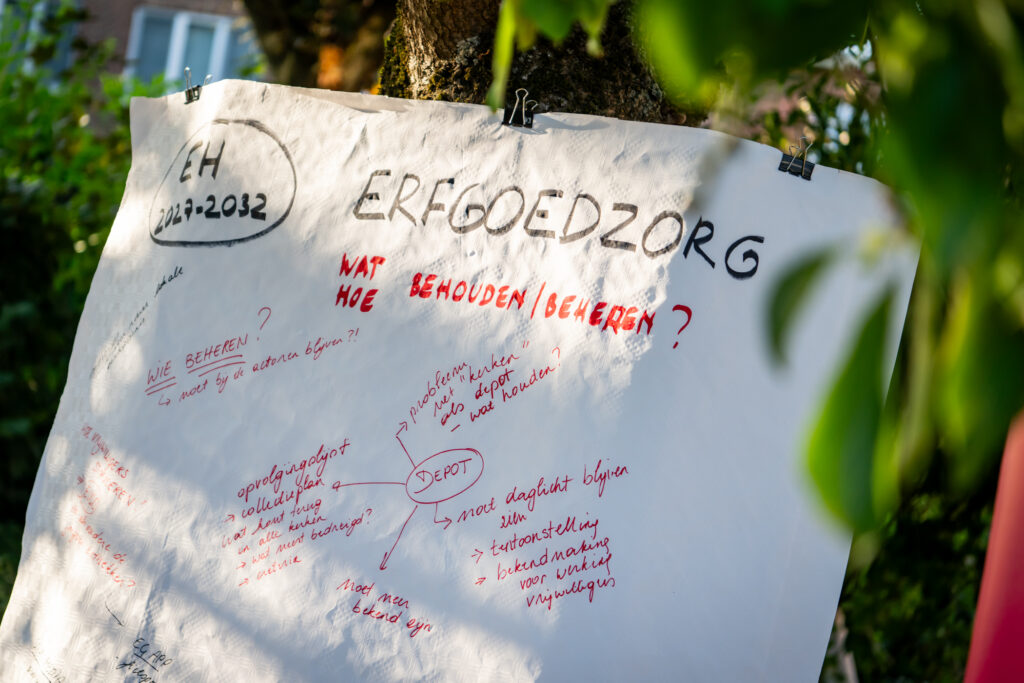 EH
2027-2032
ERFGOEDZORG
WAT
HOE
BEHOUDEN/BEHEREN?
WIE BEHEREN?
↳ moet bij de actoren blijven?!
probleem
met "kerken"
als depot
- wat houden?
DEPOT
opvolgingslijst
→ collectieplan
wat komt terug
en alle kerken
→ wat meest bedreigd?
→
moet daglicht blijven
zien
→ tentoonstelling
→ bekendmaking
voor werking
vrijwilligers
moet meer
bekend zijn
VRIJWILLIGERS